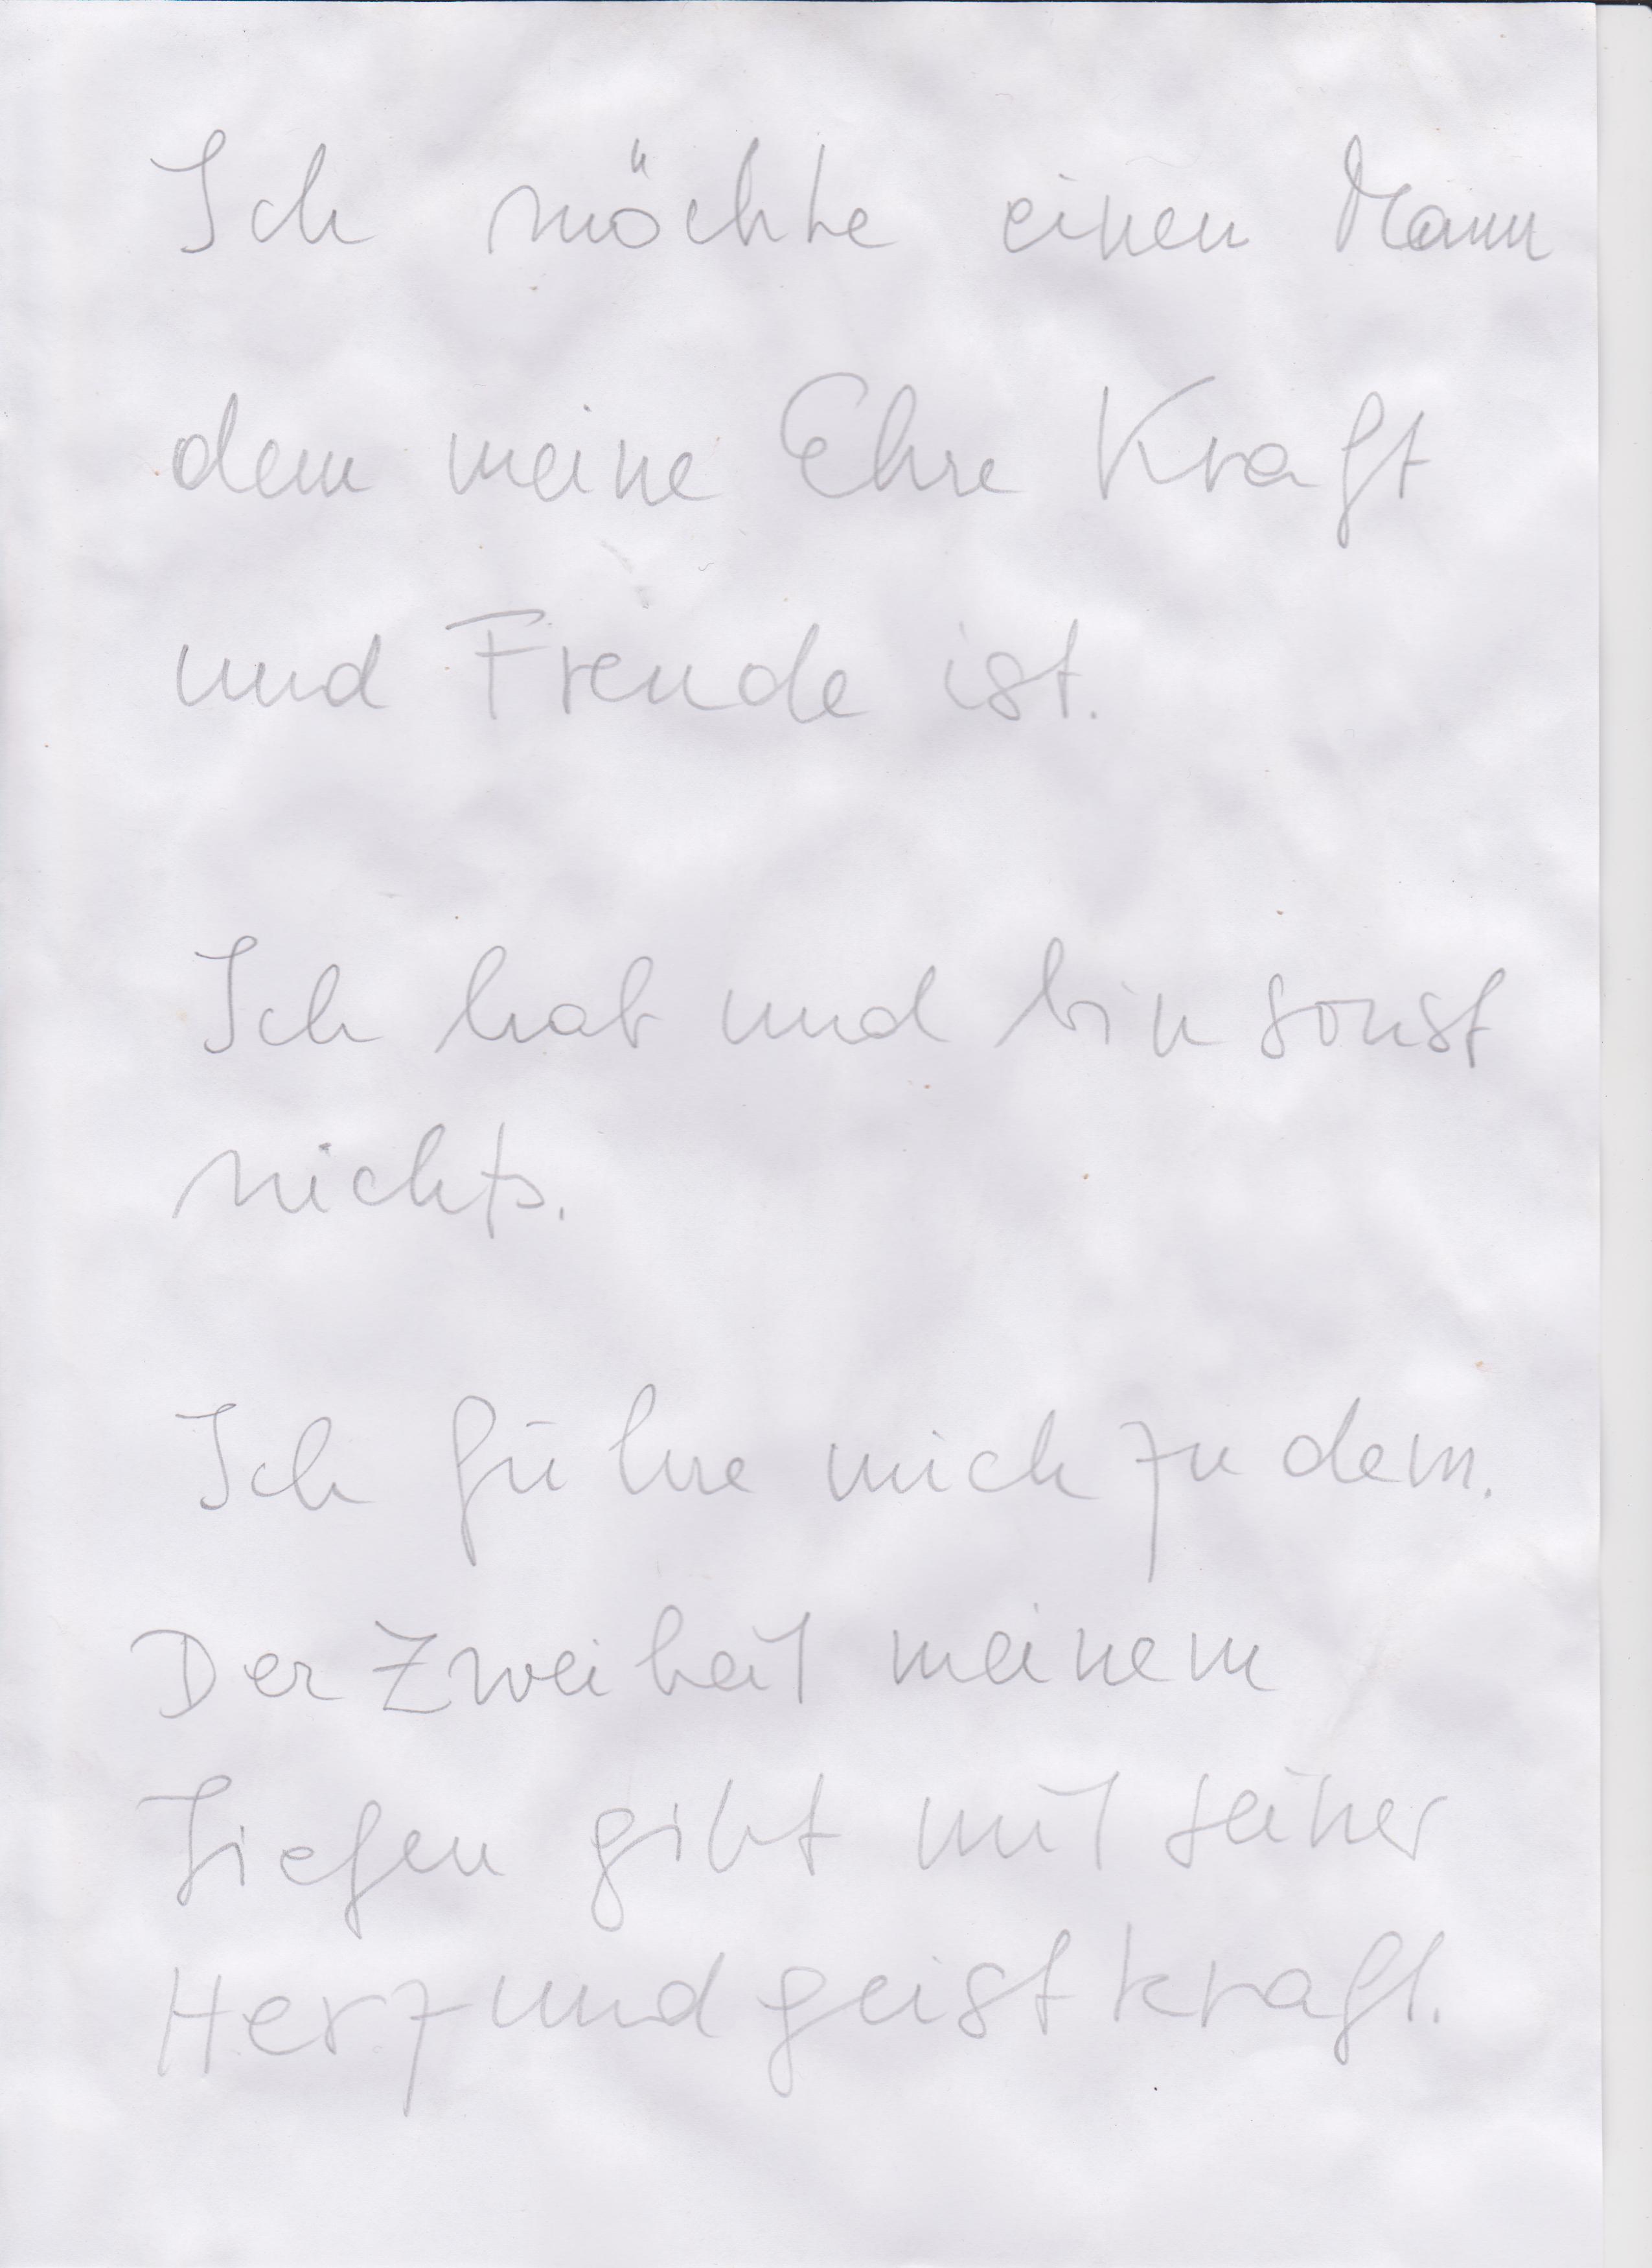 Ich möchte einen Mann
dem meine Ehre Kraft
und Freude ist.
Ich hab und bin sonst
nichts.
Ich führe mich zu dem.
Der Zweiheit meinem
Tiefen gibt mit seiner
Herz und geistkraft.